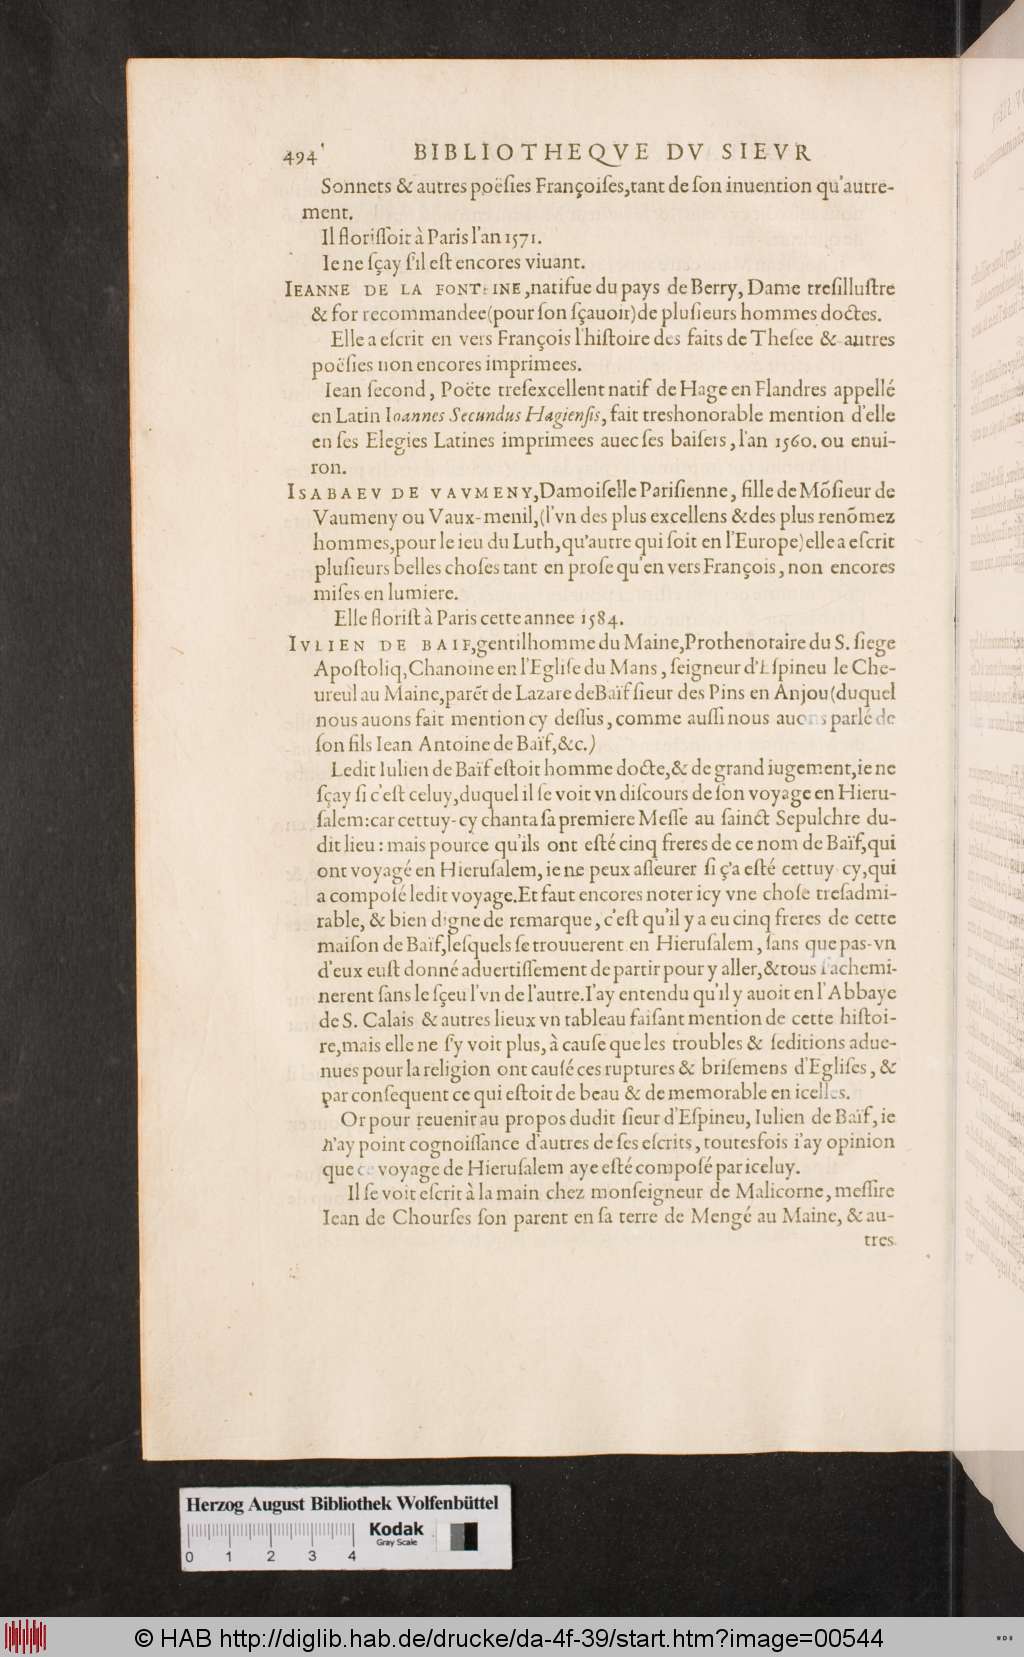 494 BIBLIOTHEQVE DV SIEVR
Sonnets & autres poësies Françoiſes,tant de ſon inuention qu'autre-
ment.
Il floriſſoit à Paris l'an 1571.
Ie ne ſçay s'il eſt encores viuant.
IEANNE DE LA FONTAINE,natifue du pays de Berry, Dame treſilluſtre
& for recommandee(pour ſon ſçauoir)de pluſieurs hommes doctes.
Elle a eſcrit en vers François l'hiſtoire des faits de Theſee & autres
poëſies non encores imprimees.
Iean ſecond, Poëte treſexcellent natif de Hage en Flandres appellé
en Latin Ioannes Secundus Hagienſis, fait treshonorable mention d'elle
en ſes Elegies Latines imprimees auec ſes baiſers, l'an 1560. ou enui-
ron.
ISABAEV DE VAVMENY,Damoiſelle Pariſienne, fille de Mõſieur de
Vaumeny ou Vaux-menil,(l'vn des plus excellens & des plus renõmez
hommes,pour le ieu du Luth,qu'autre qui ſoit en l'Europe)elle a eſcrit
pluſieurs belles choſes tant en proſe qu'en vers François, non encores
miſes en lumiere.
Elle floriſt à Paris cette annee 1584.
IVLIEN DE BAIF,gentilhomme du Maine,Prothenotaire du S. ſiege
Apoſtoliq,Chanoine en l'Egliſe du Mans, ſeigneur d'Eſpineu le Che-
ureul au Maine,parẽt de Lazare de Baïf ſieur des Pins en Anjou(duquel
nous auons fait mention cy deſſus, comme auſſi nous auons parlé de
ſon fils Iean Antoine de Baïf,&c.)
Ledit Iulien de Baïf eſtoit homme docte,& de grand iugement,ie ne
ſçay ſi c'eſt celuy,duquel il ſe voit vn diſcours de ſon voyage en Hieru-
ſalem:car cettuy-cy chanta ſa premiere Meſſe au ſainct Sepulchre du-
dit lieu: mais pource qu'ils ont eſté cinq freres de ce nom de Baïf,qui
ont voyagé en Hieruſalem, ie ne peux aſſeurer ſi ç'a eſté cettuy cy,qui
a compoſé ledit voyage.Et faut encores noter icy vne choſe treſadmi-
rable, & bien digne de remarque, c'eſt qu'il y a eu cinq freres de cette
maiſon de Baïf,leſquels ſe trouuerent en Hieruſalem, ſans que pas-vn
d'eux euſt donné aduertiſſement de partir pour y aller,& tous ſ'achemi-
nerent ſans le ſçeu l'vn de l'autre.I'ay entendu qu'il y auoit en l'Abbaye
de S. Calais & autres lieux vn tableau faiſant mention de cette hiſtoi-
re,mais elle ne ſ'y voit plus, à cauſe que les troubles & ſeditions adue-
nues pour la religion ont cauſé ces ruptures & briſemens d'Egliſes, &
par conſequent ce qui eſtoit de beau & de memorable en icelles.
Or pour reuenir au propos dudit ſieur d'Eſpineu, Iulien de Baïf, ie
n'ay point cognoiſſance d'autres de ſes eſcrits, toutesfois i'ay opinion
que ce voyage de Hieruſalem aye eſté compoſé par iceluy.
Il ſe voit eſcrit à la main chez monſeigneur de Malicorne, meſſire
Iean de Chourſes ſon parent en ſa terre de Mengé au Maine, & au-
tres
Herzog August Bibliothek Wolfenbüttel
Kodak
Gray Scale
0 1 2 3 4
© HAB http://diglib.hab.de/drucke/da-4f-39/start.htm?image=00544